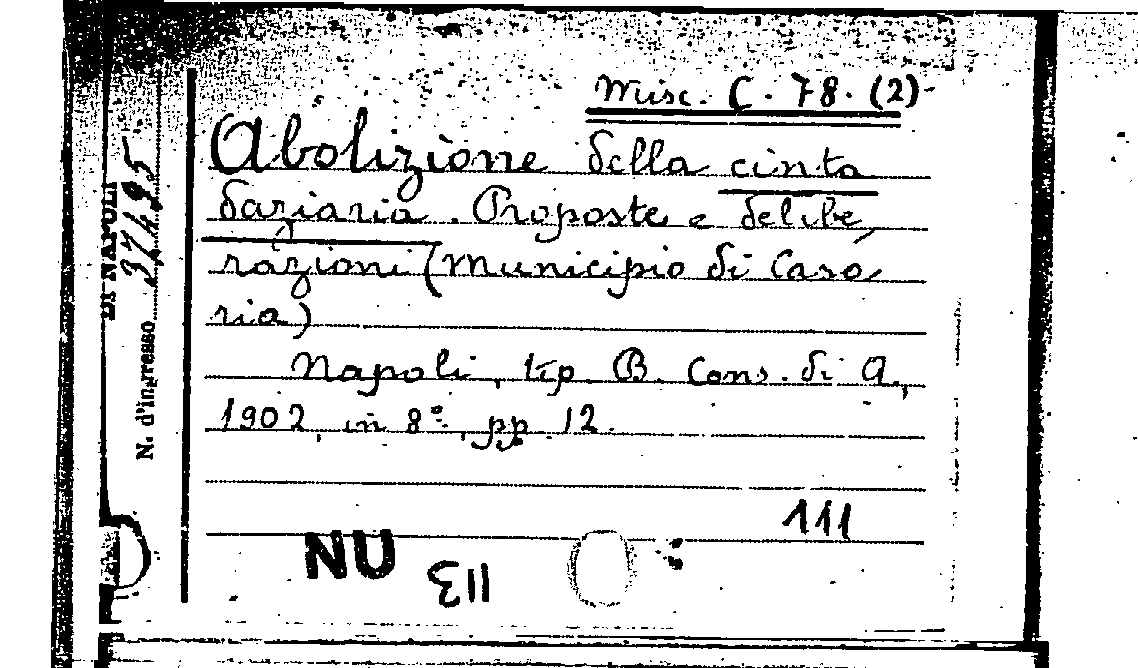 Misc. C. 78. (2)
Abolizione della cinta
daziaria. Proposte e delibe
razioni (Municipio di Caso
ria)
Napoli, tip. B. Cons. di A.,
1902, in 8°, pp. 12.
111
NU
113
DI NAPOLI
N. d'ingresso 37495